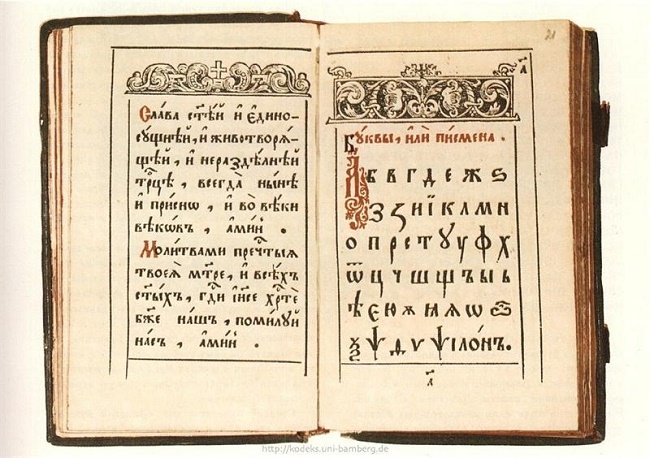 Сла́ва ст҃ѣ́й и҆ є҆ди́но-
сꙋ́щнѣй, и҆ животворѧ́-
щѣй, и҆ нераздѣ́лнѣй
трⷪ҇цѣ, всегда̀ ны́нѣ
и҆ при́снѡ, и҆ во вѣ́ки
вѣкѡ́въ, а҆ми́нь.
Моли́твами пречⷭ҇тыѧ
твоеѧ̀ мт҃ре, и҆ всѣ́хъ
ст҃ы́хъ, гдⷭ҇и і҆и҃се хрⷭ҇тѐ
бж҃е на́шъ, поми́лꙋй
на́съ, а҆ми́нь.
21
а҃
Бꙋ́квы, и҆лѝ пи́смена.
А б в г д е ж ѕ
З ꙁ и ї к л м н
о п р с т ꙋ у ф х
ѿ ц ч ш щ ъ ы ь
ѣ є ю ѫ ꙗ ѧ ѡ ѽ
ѯ ѱ д ѵ ѱіло́нъ.
а҃
http://kodeks.uni-bamberg.de